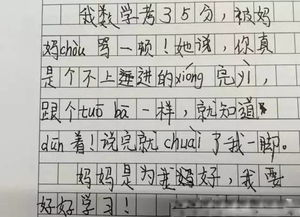 我数学考35分，被妈
妈chòu骂一顿！她说，你真
是个不上进的xiōng克川，
跟个tuō bǎ一样，就知道
dūn着！说完就chuài了我一脚。
妈妈是为我好，我要
好好学习！